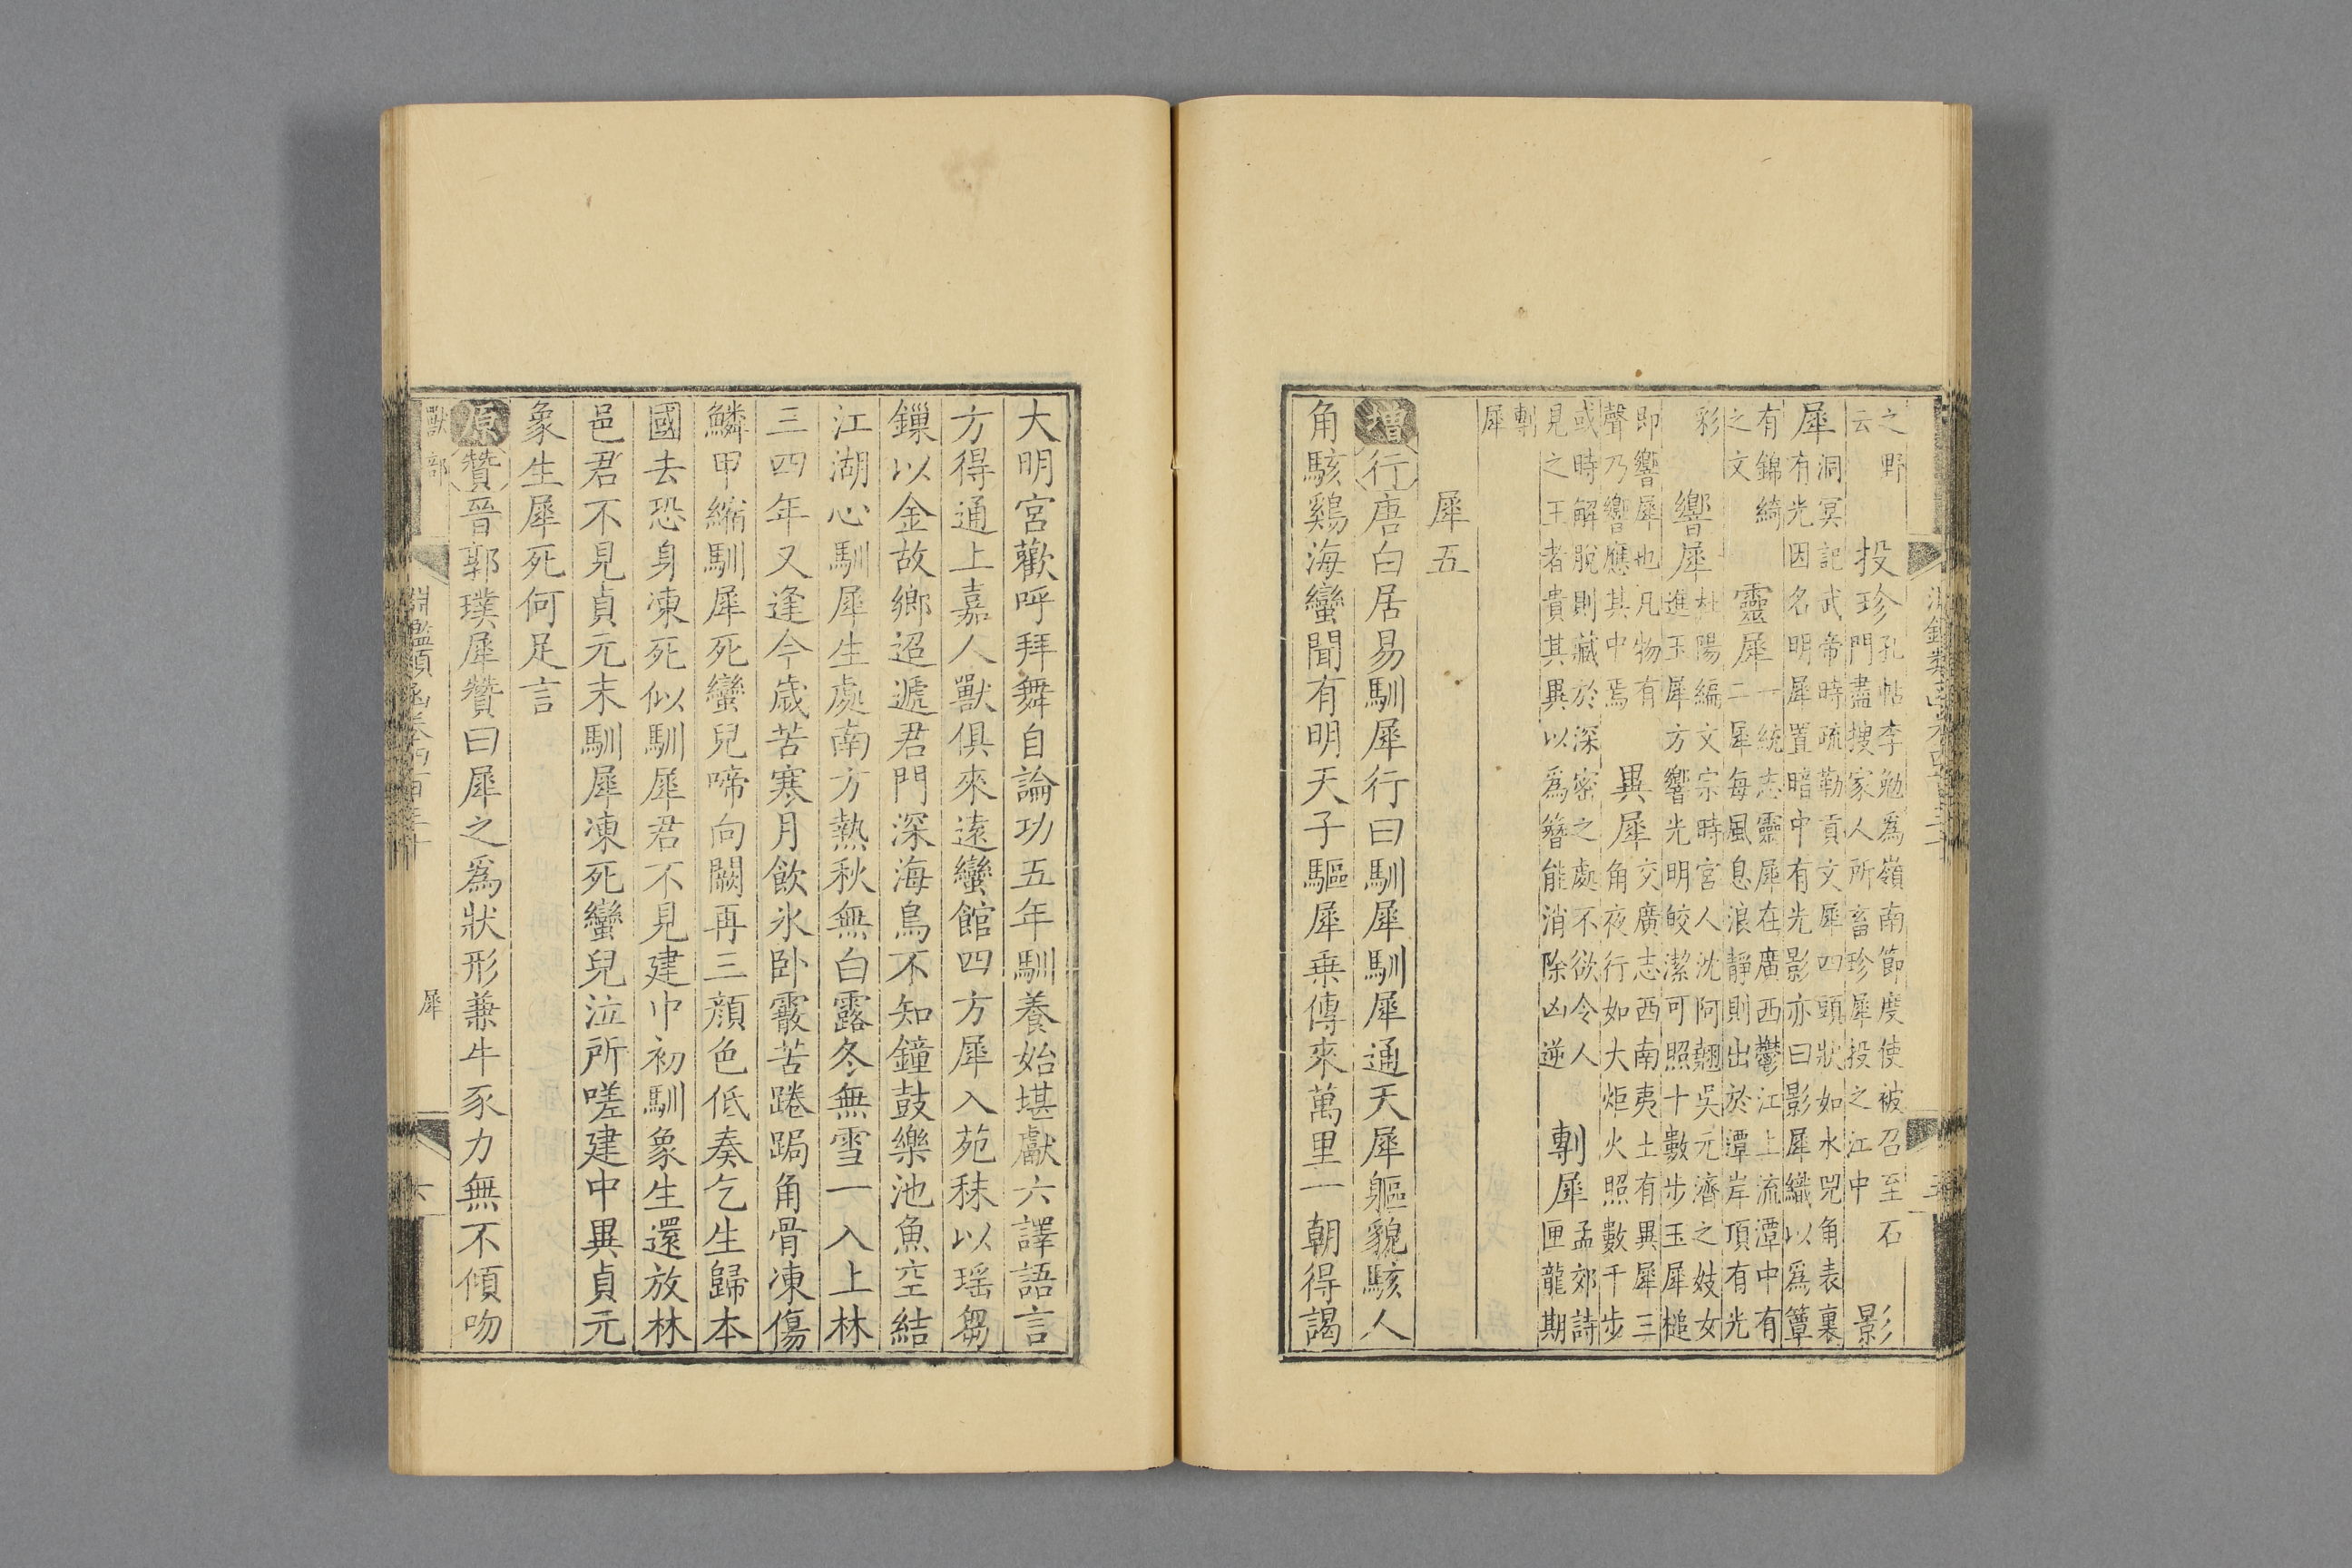 之野
云
投珍
孔帖李勉爲嶺南節度使被召至石
門盡搜家人所畜珍犀投之江中
影
犀
洞冥記武帝時疏勒貢文犀四頭狀如水兕角表裏
有光因名明犀置暗中有光影亦曰影犀織以爲簟
有錦綺
之文
靈犀
一統志靈犀在廣西鬱江上流潭中有
二犀每風息浪靜則出於潭岸頂有光
彩
響犀
杜陽編文宗時宮人沈阿翹吳元濟之妓女
進玉犀方響光明皎潔可照十數步玉犀槌
即響犀也凡物有
聲乃響應其中焉
異犀
交廣志西南夷土有異犀三
角夜行如大炬火照數千步
或時解脫則藏於深密之處不欲令人
見之王者貴其異以爲簪能消除凶逆
剸犀
孟郊詩
匣龍期
剸
犀
犀五
增行唐白居易馴犀行曰馴犀馴犀通天犀軀貌駭人
角駭鷄海蠻聞有明天子驅犀乗傳來萬里一朝得謁
大明宮歡呼拜舞自論功五年馴養始堪獻六譯語言
方得通上嘉人獸俱來遠蠻館四方犀入苑秣以瑶芻
鏁以金故鄉迢遞君門深海鳥不知鐘鼓樂池魚空結
江湖心馴犀生處南方熱秋無白露冬無雪一入上林
三四年又逢今歲苦寒月飲氷卧霰苦踡跼角骨凍傷
鱗甲縮馴犀死蠻兒啼向闕再三顔色低奏乞生歸本
國去恐身凍死似馴犀君不見建中初馴象生還放林
邑君不見貞元末馴犀凍死蠻兒泣所嗟建中異貞元
象生犀死何足言
原贊晉郭璞犀贊曰犀之爲狀形兼牛豕力無不傾吻
獸部
犀
六